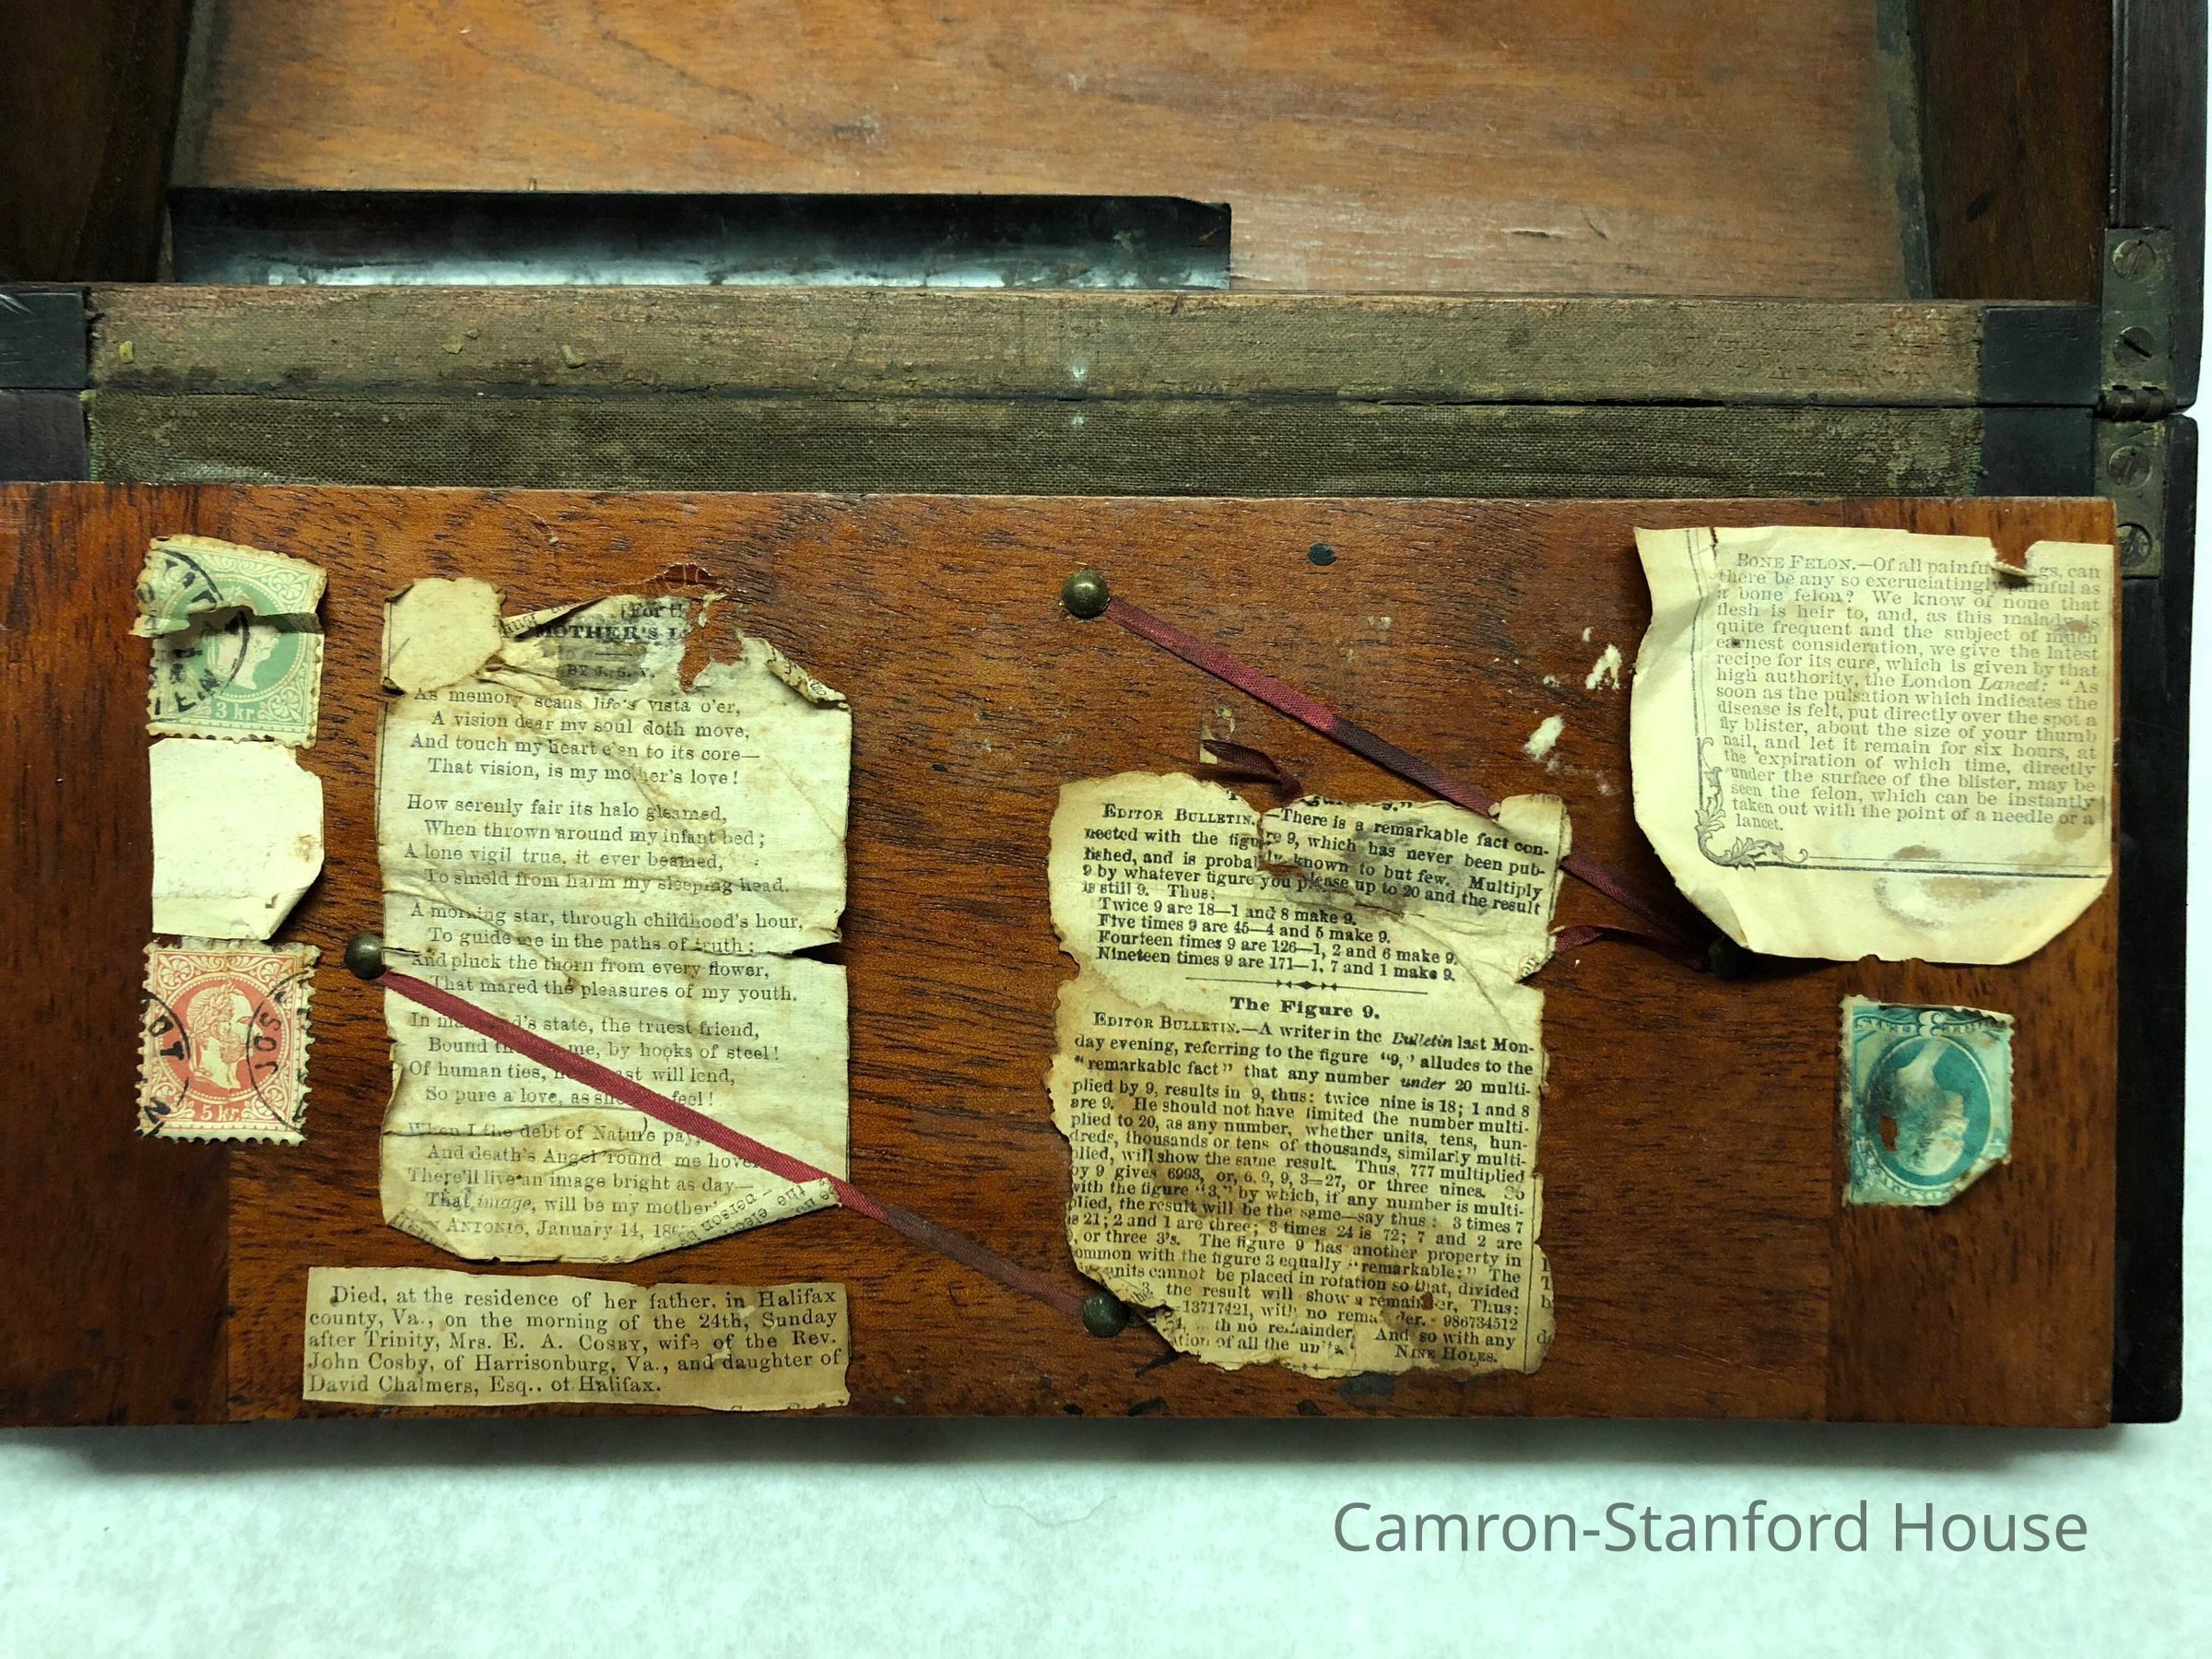 3 kr.
5 kr.
JOS
MOTHER'S
BY J. S.
As memory scans life's vista o'er,
A vision dear my soul doth move,
And touch my heart e'en to its core—
That vision, is my mother's love!
How serenly fair its halo gleamed,
When thrown around my infant bed;
A lone vigil true, it ever beamed,
To shield from harm my sleeping head.
A morning star, through childhood's hour,
To guide me in the paths of truth;
And pluck the thorn from every flower,
That mared the pleasures of my youth.
In state, the truest friend,
Bound me, by hooks of steel!
Of human ties, will lend,
So pure a love, as feel!
When I the debt of Nature pay,
And death's Angel 'round me
There'll live an image bright as day—
That image, will be my mother's
ANTONIO, January 14,
Died, at the residence of her father, in Halifax
county, Va., on the morning of the 24th, Sunday
after Trinity, Mrs. E. A. COSBY, wife of the Rev.
John Cosby, of Harrisonburg, Va., and daughter of
David Chalmers, Esq., of Halifax.
EDITOR BULLETIN.—There is a remarkable fact con-
nected with the figure 9, which has never been pub-
lished, and is probably known to but few. Multiply
9 by whatever figure you please up to 20 and the result
is still 9. Thus:
Twice 9 are 18—1 and 8 make 9.
Five times 9 are 45—4 and 5 make 9.
Fourteen times 9 are 126—1, 2 and 6 make 9.
Nineteen times 9 are 171—1, 7 and 1 make 9.
The Figure 9.
EDITOR BULLETIN.—A writer in the Bulletin last Mon-
day evening, referring to the figure "9," alludes to the
"remarkable fact" that any number under 20 multi-
plied by 9, results in 9, thus: twice nine is 18; 1 and 8
are 9. He should not have limited the number multi-
plied to 20, as any number, whether units, tens, hun-
dreds, thousands or tens of thousands, similarly multi-
plied, will show the same result. Thus, 777 multiplied
by 9 gives 6993, or, 6, 9, 9, 3=27, or three nines. So
with the figure "3," by which, if any number is multi-
plied, the result will be the same—say thus: 3 times 7
is 21; 2 and 1 are three; 3 times 24 is 72; 7 and 2 are
, or three 3's. The figure 9 has another property in
common with the figure 3 equally "remarkable:" The
units cannot be placed in rotation so that, divided
the result will show a remainder. Thus:
=13717421, with no remainder. 986734512
th no remainder. And so with any
of all the units.
NINE HOLES.
BONE FELON.—Of all painful can
there be any so excruciatingly painful as
a bone felon? We know of none that
flesh is heir to, and, as this malady is
quite frequent and the subject of much
earnest consideration, we give the latest
recipe for its cure, which is given by that
high authority, the London Lancet: "As
soon as the pulsation which indicates the
disease is felt, put directly over the spot a
fly blister, about the size of your thumb
nail, and let it remain for six hours, at
the expiration of which time, directly
under the surface of the blister, may be
seen the felon, which can be instantly
taken out with the point of a needle or a
lancet.
Camron-Stanford House